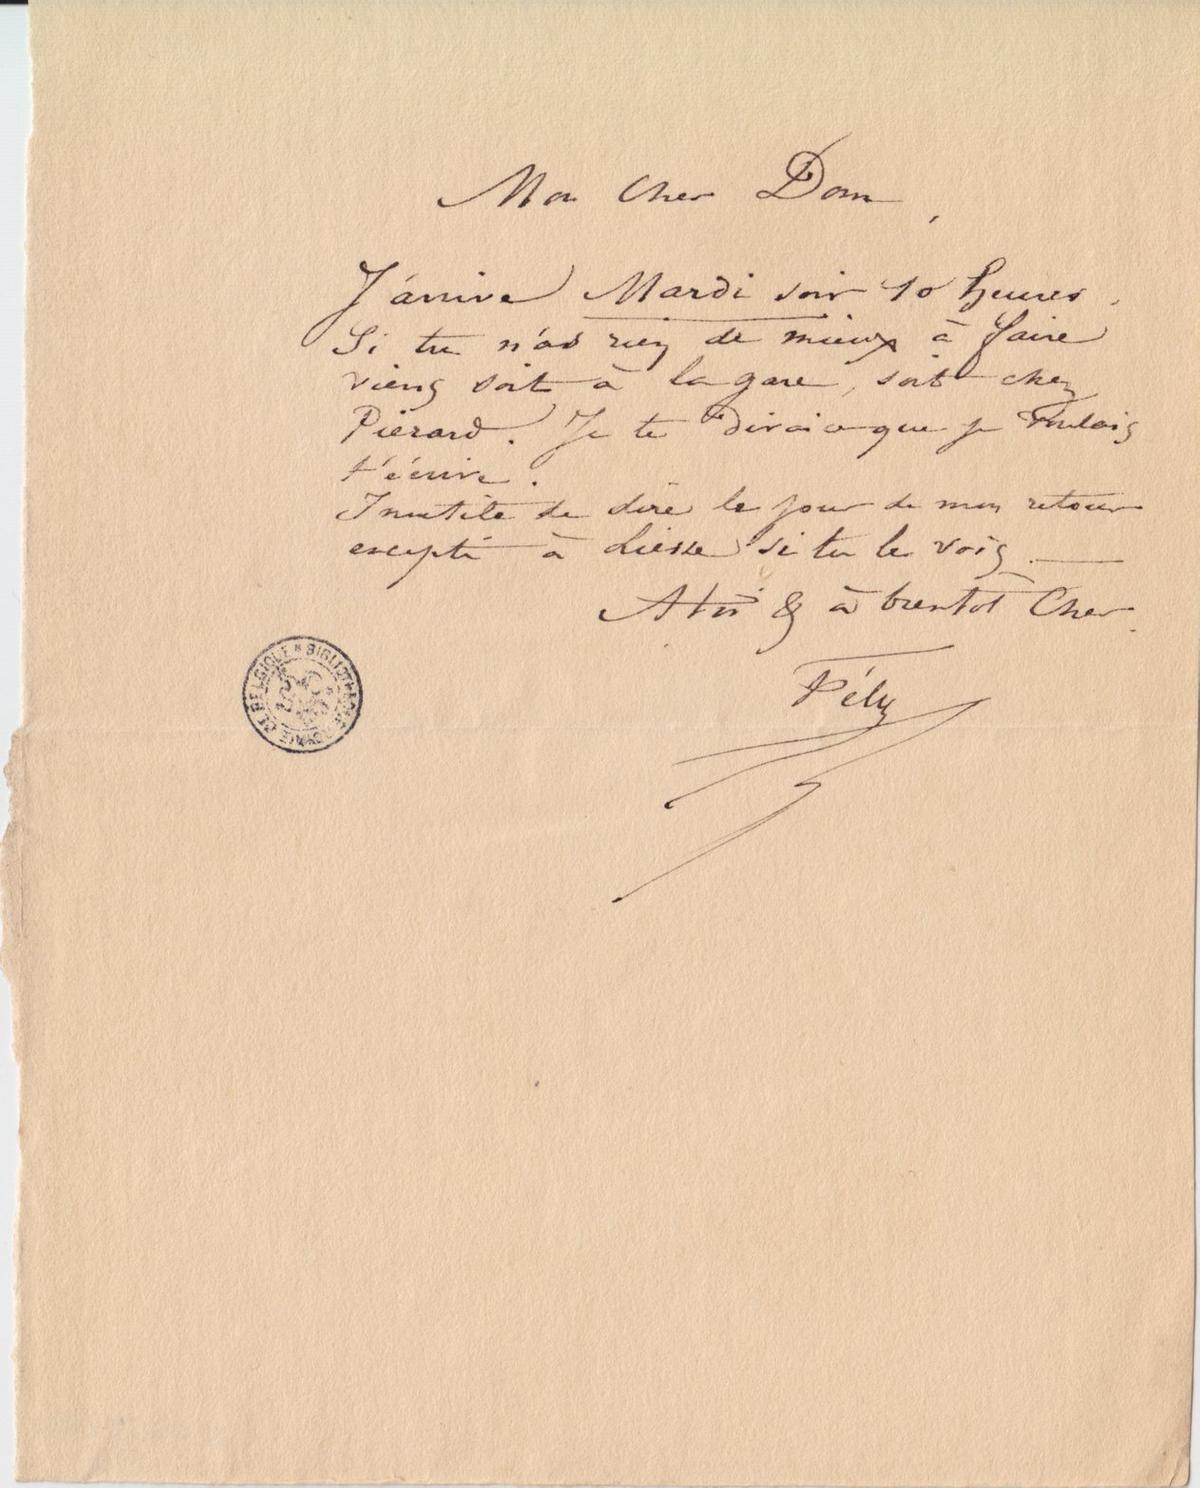 Mon Cher Dom,
J'arrive Mardi soir 10 heures.
Si tu n'as rien de mieux à faire
viens soit à la gare, soit chez
Piérard. Je te dirai ce que je voulais
t'écrire.
Inutile de dire le jour de mon retour
excepté à Liesse si tu le vois
A toi & à bientôt Cher.
Fély
BIBLIOTHEQUE ROYALE DE BELGIQUE